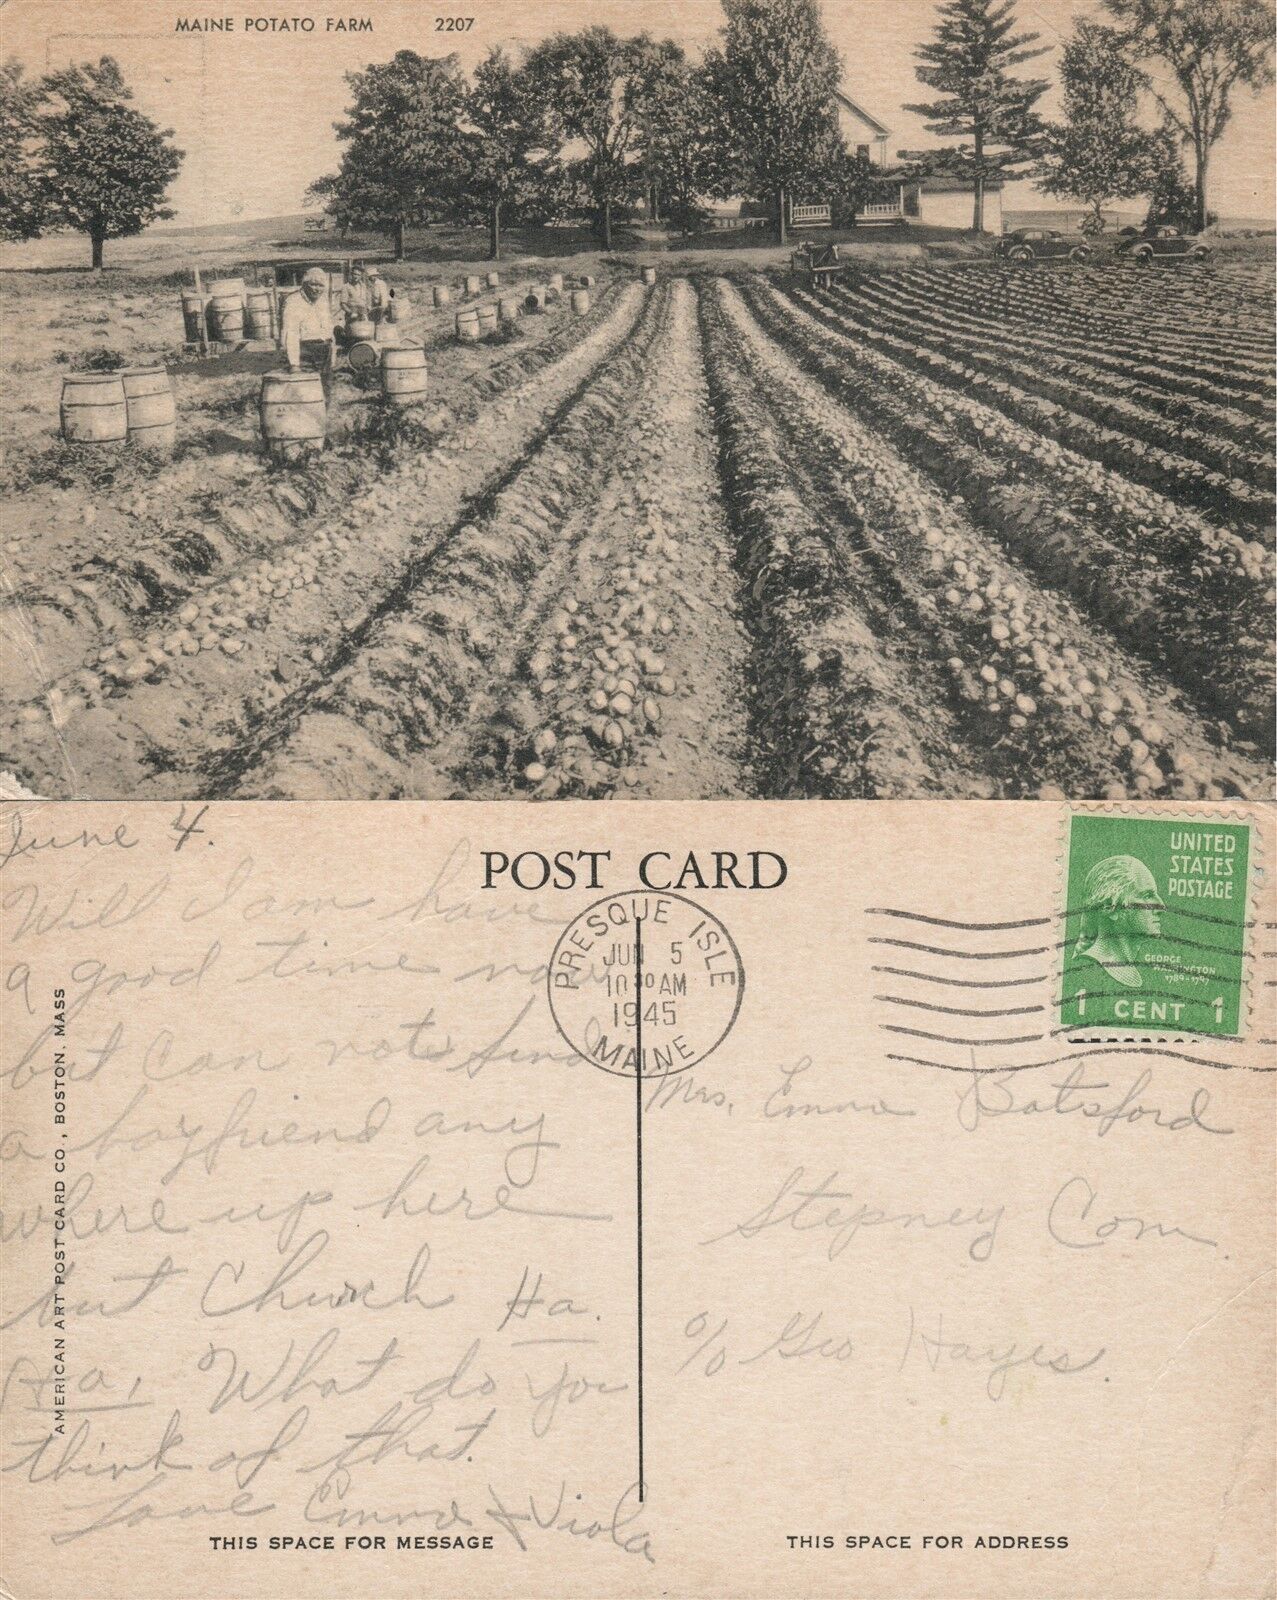 MAINE POTATO FARM 2207
June 4.
Will I am have
a good time now
but can not find
a boyfriend any
where up here
but Church Ha.
Ha, What do you
think of that.
Love Emma & Viola
POST CARD
AMERICAN ART POST CARD CO., BOSTON, MASS
THIS SPACE FOR MESSAGE
PRESQUE ISLE
JUN 5
10 30 AM
1945
MAINE
UNITED
STATES
POSTAGE
GEORGE
WASHINGTON
1789-1797
1 CENT 1
Mrs. Emma Botsford
Stepney Conn.
c/o Geo Hayes.
THIS SPACE FOR ADDRESS